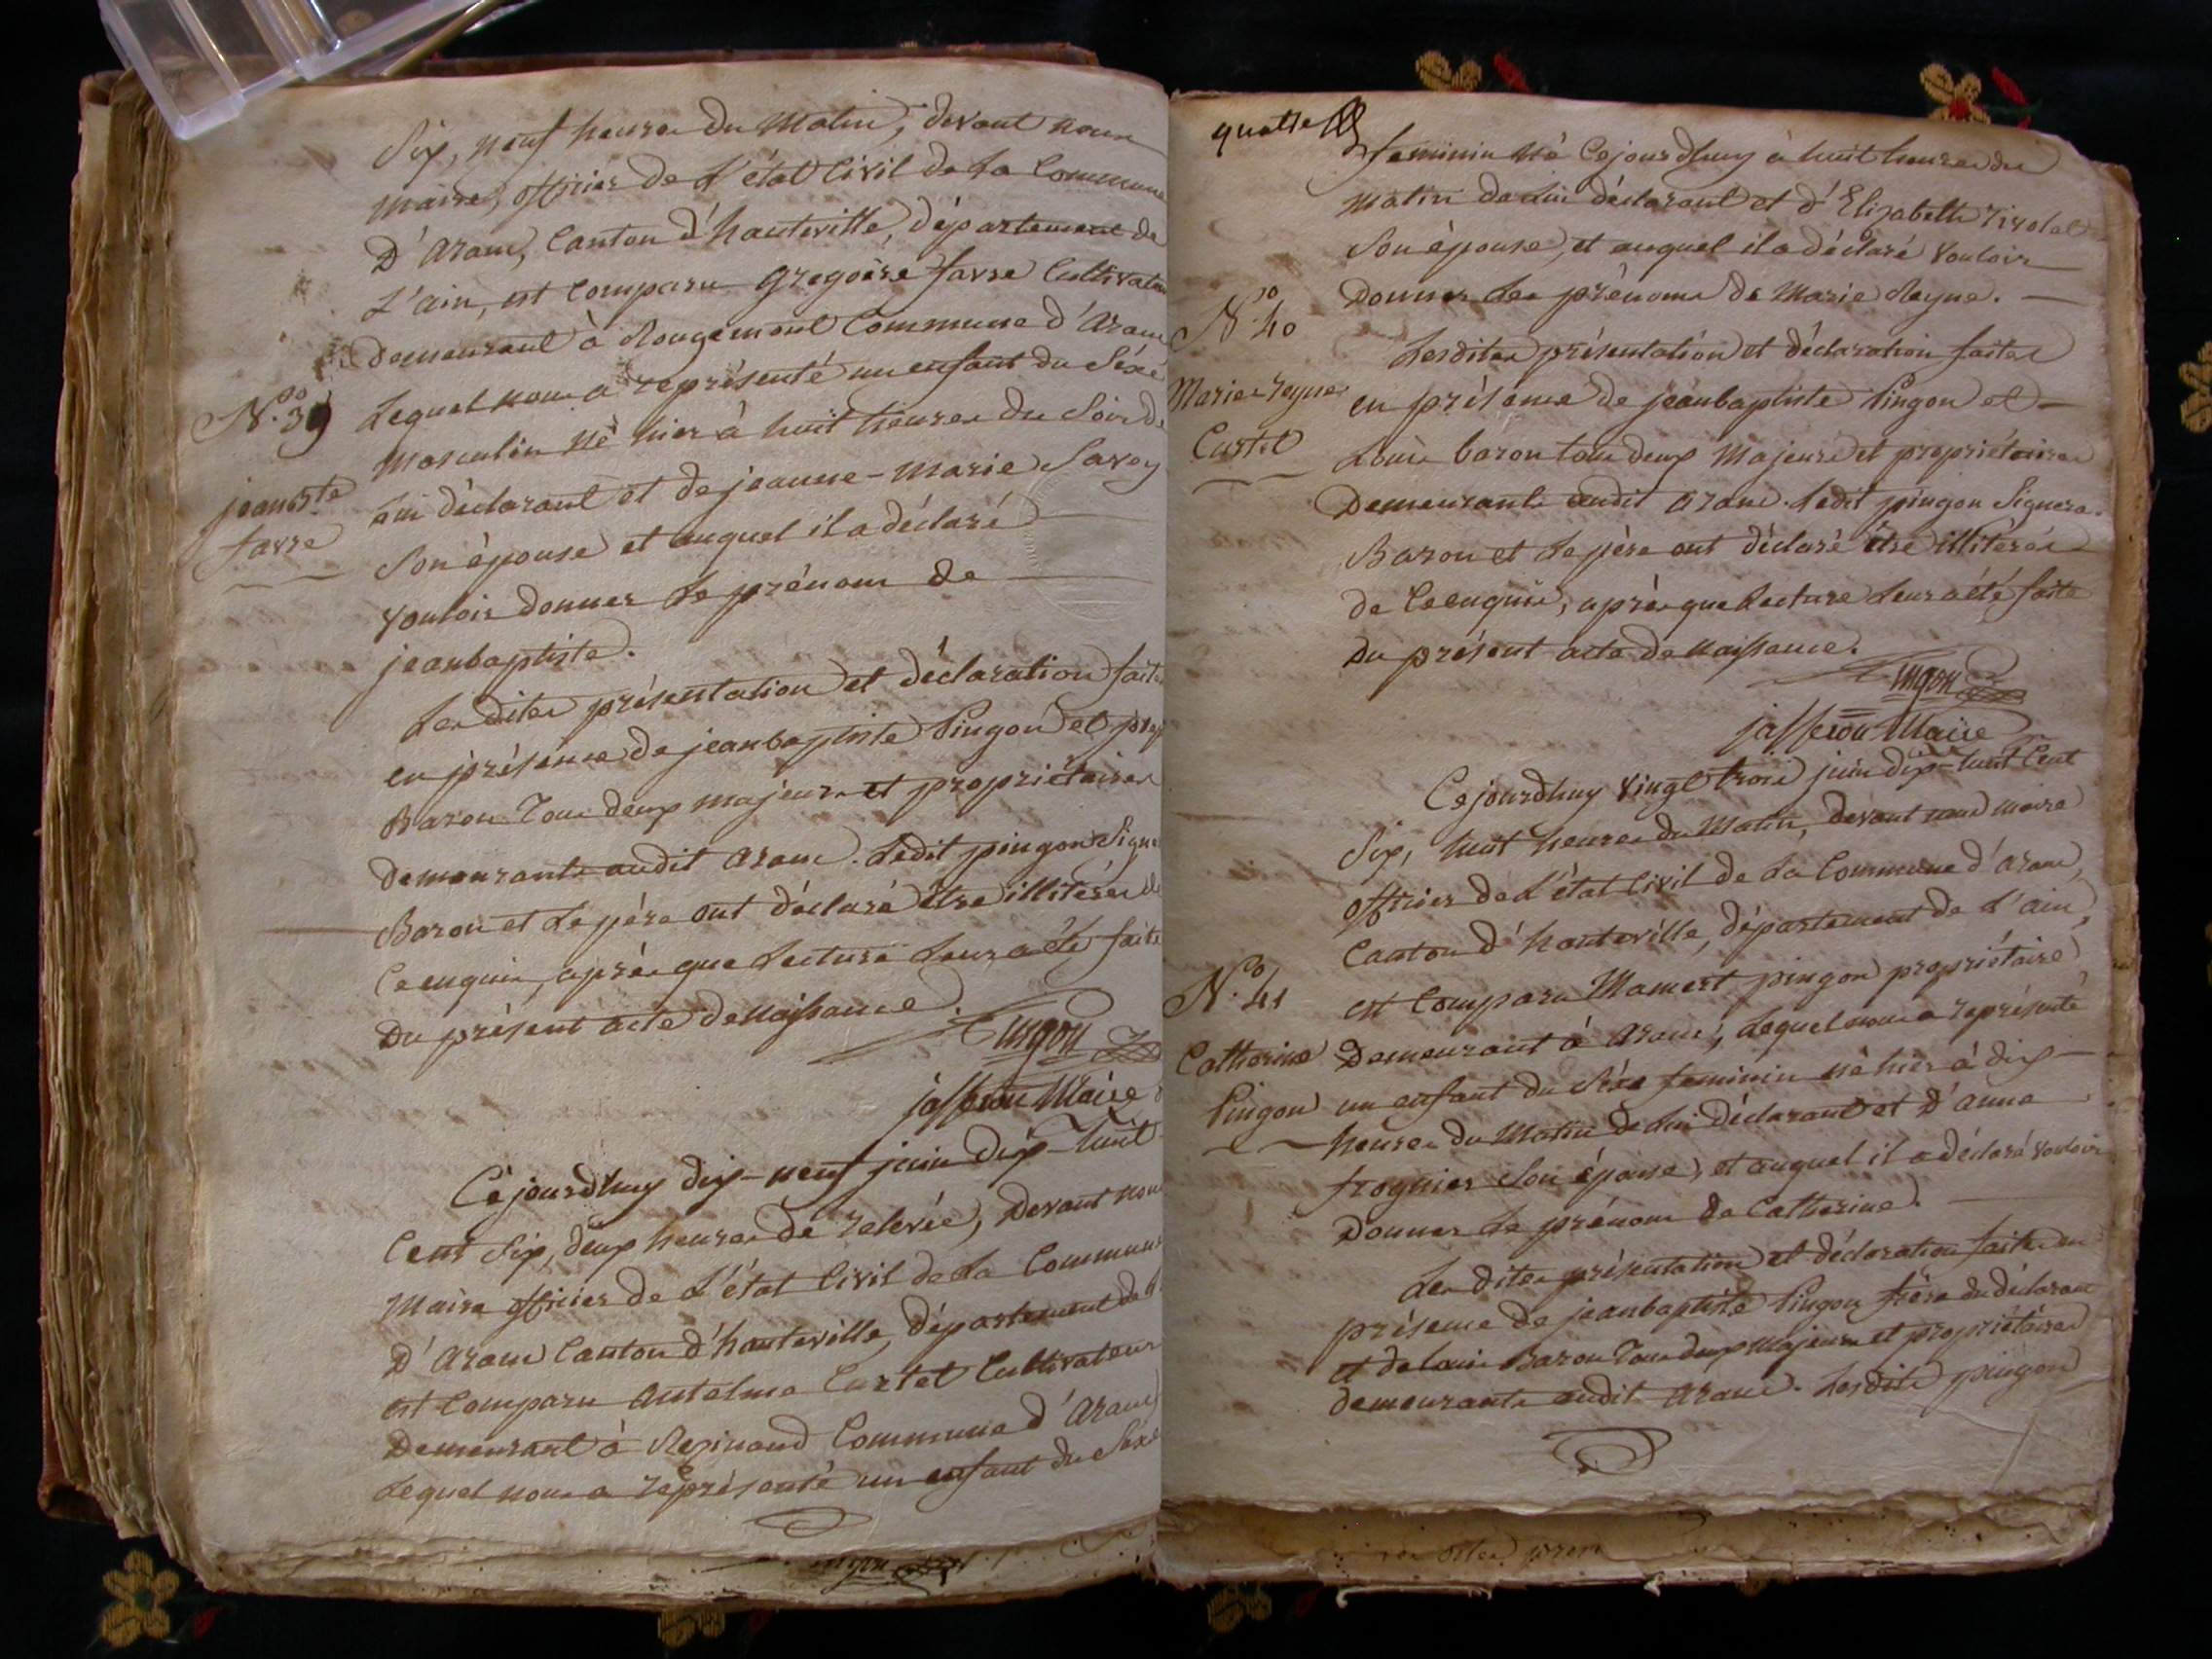 Six, neuf heures du Matin, devant nous
maire, officier de L'état Civil de La Commune
D'Aranc, Canton d'hauteville, département de
L'ain, est Comparu gregoire favre Cultivateur
Demeurant à Rougemont Commune d'Aranc
N.o 39
Lequel nous a représenté un enfant du Séxe
masculin né hier à huit heures du Soir de
jean Bte
favre
Lui déclarant et de jeanne-marie Savey
Son épouse et auquel il a déclaré
vouloir donner Le prénom de
jeanbaptiste.
Les dites présentation et déclaration faites
en présence de jeanbaptiste Pingon et
Baron Tous deux majeurs et propriétaires
Demeurants audit Aranc. Ledit pingon Signe
Baron et Le père ont déclaré être illitérés de
Ce enquis, après que Lecture Leur a été faite
Du présent acte de Naissance.
Pingon
jasseron Maire
Cejourdhuy dix-neuf juin dix-huit
Cent Six, deux heures de relevée, Devant nous
Maire officier de L'état Civil de La Commune
D'Aranc Canton d'hauteville, département de
est Comparu Antelme Curtet Cultivateur
Demeurant à Resinand Commune d'Aranc
Lequel nous a représenté un enfant du Séxe
quatre
feminin né Cejourdhuy à huit heures du
Matin de Lui déclarant et d'Elizabeth rivolet
Son épouse, et auquel il a déclaré vouloir
Donner Les prénoms de Marie Reyne.
N.o 40
Marie reyne
Curtet
Lesdites présentation et déclaration faites
en présence de jeanbaptiste Pingon et
Louis baron tous deux Majeurs et propriétaires
Demeurants audit Aranc. Ledit pingon Signera.
Baron et Le père ont déclaré être illitérés
de Ce enquis, après que Lecture Leur a été faite
Du présent acte de Naissance.
Pingon
jasseron Maire
Cejourdhuy vingt trois juin dix-huit Cent
Six, huit heures du Matin, devant nous maire
officier de L'état Civil de La Commune d'Aranc,
Canton d'hauteville, département de L'ain,
N.o 41
est Comparu Mamert pingon propriétaire
Catherine
Pingon
Demeurant à Aranc, Lequel nous a représenté
un enfant du Séxe feminin né hier à dix
heures du Matin de Lui déclarant et D'anne
frognier Son épouse, et auquel il a déclaré vouloir
Donner Le prénom de Catherine.
Les dites présentation et déclaration faites en
présence de jeanbaptiste Pingon frère du déclarant
et de Louis Baron Tous deux majeurs et propriétaires
demeurants audit Aranc. Lesdits pingon